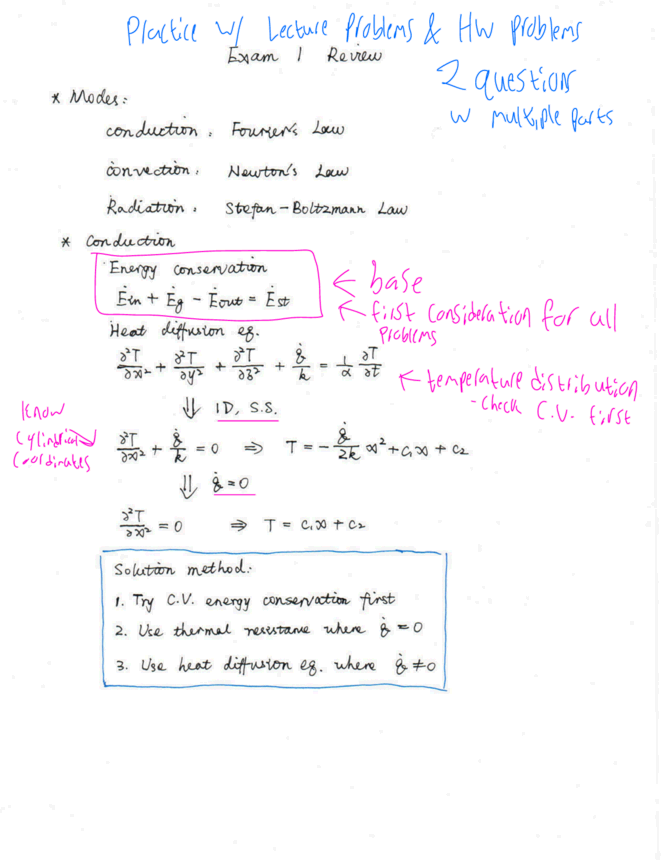 Practice w/ Lecture Problems & HW Problems
Exam 1 Review
2 question
w multiple parts
* Modes:
conduction, Fourier's Law
convection, Newton's Law
Radiation, Stefan-Boltzmann Law
* Conduction
Energy conservation
Ėin + Ėg - Ėout = Ėst
← base
← first consideration for all
Problems
Heat diffusion eq.
∂²T/∂x² + ∂²T/∂y² + ∂²T/∂z² + q̇/k = 1/α ∂T/∂t
← temperature distribution
- Check C.V. first
⇓ 1D, S.S.
Know
Cylindrical
Coordinates
∂²T/∂x² + q̇/k = 0 ⇒ T = - q̇/2k x² + c₁x + c₂
⇓ q̇ = 0
∂²T/∂x² = 0 ⇒ T = c₁x + c₂
Solution method:
1. Try C.V. energy conservation first
2. Use thermal resistance where q̇ = 0
3. Use heat diffusion eq. where q̇ ≠ 0